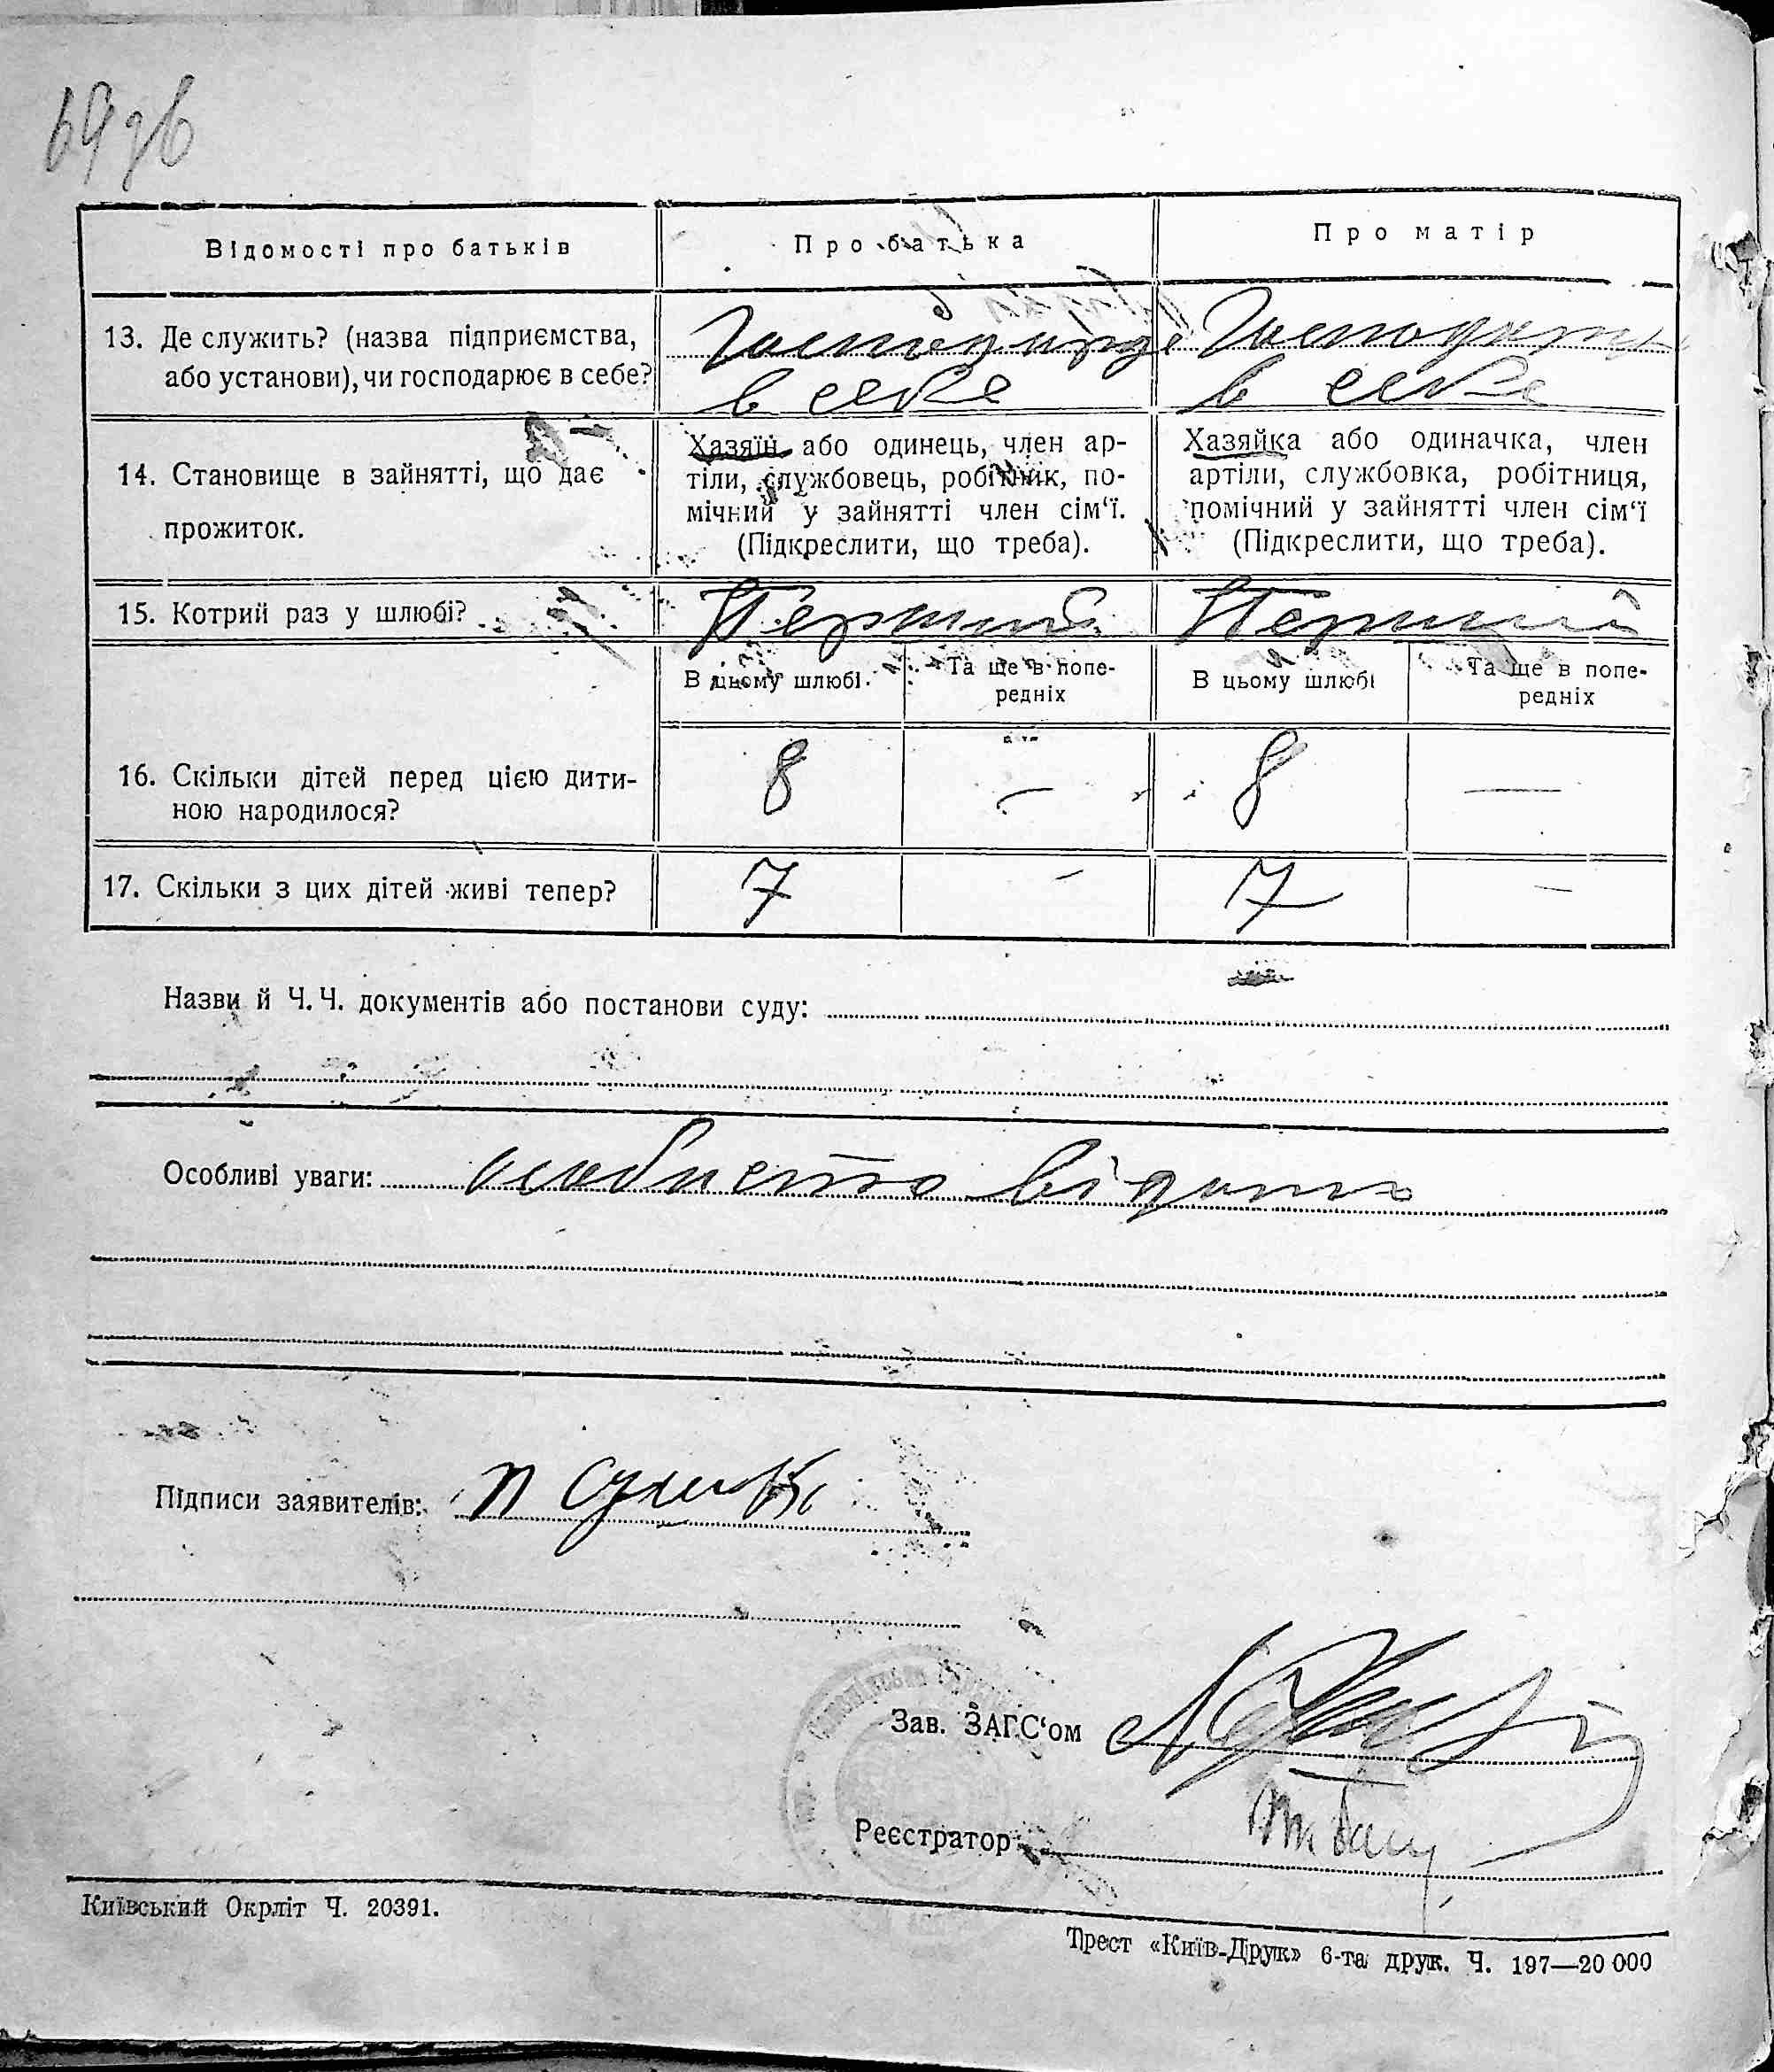 69 зв
Відомості про батьків
Про батька
Про матір
13. Де служить? (назва підприємства, або установи), чи господарює в себе?
Господарює
в себе
Господарює
в себе
14. Становище в зайнятті, що дає
прожиток.
Хазяїн або одинець, член ар-
тіли, службовець, робітник, по-
мічний у зайнятті член сім‘ї.
(Підкреслити, що треба).
Хазяйка або одиначка, член
артіли, службовка, робітниця,
помічний у зайнятті член сім‘ї
(Підкреслити, що треба).
15. Котрий раз у шлюбі?
Перший
Перший
В цьому шлюбі
Та ще в попе-
редніх
В цьому шлюбі
Та ще в попе-
редніх
16. Скільки дітей перед цією дити-
ною народилося?
8
—
8
—
17. Скільки з цих дітей живі тепер?
7
—
7
—
Назви й Ч. Ч. документів або постанови суду:
Особливі уваги: особисто відомо
Підписи заявителів: П
Зав. ЗАГС‘ом
Реєстратор
Київський Окрліт Ч. 20391.
Трест «Київ-Друк» 6-та друк. Ч. 197—20 000